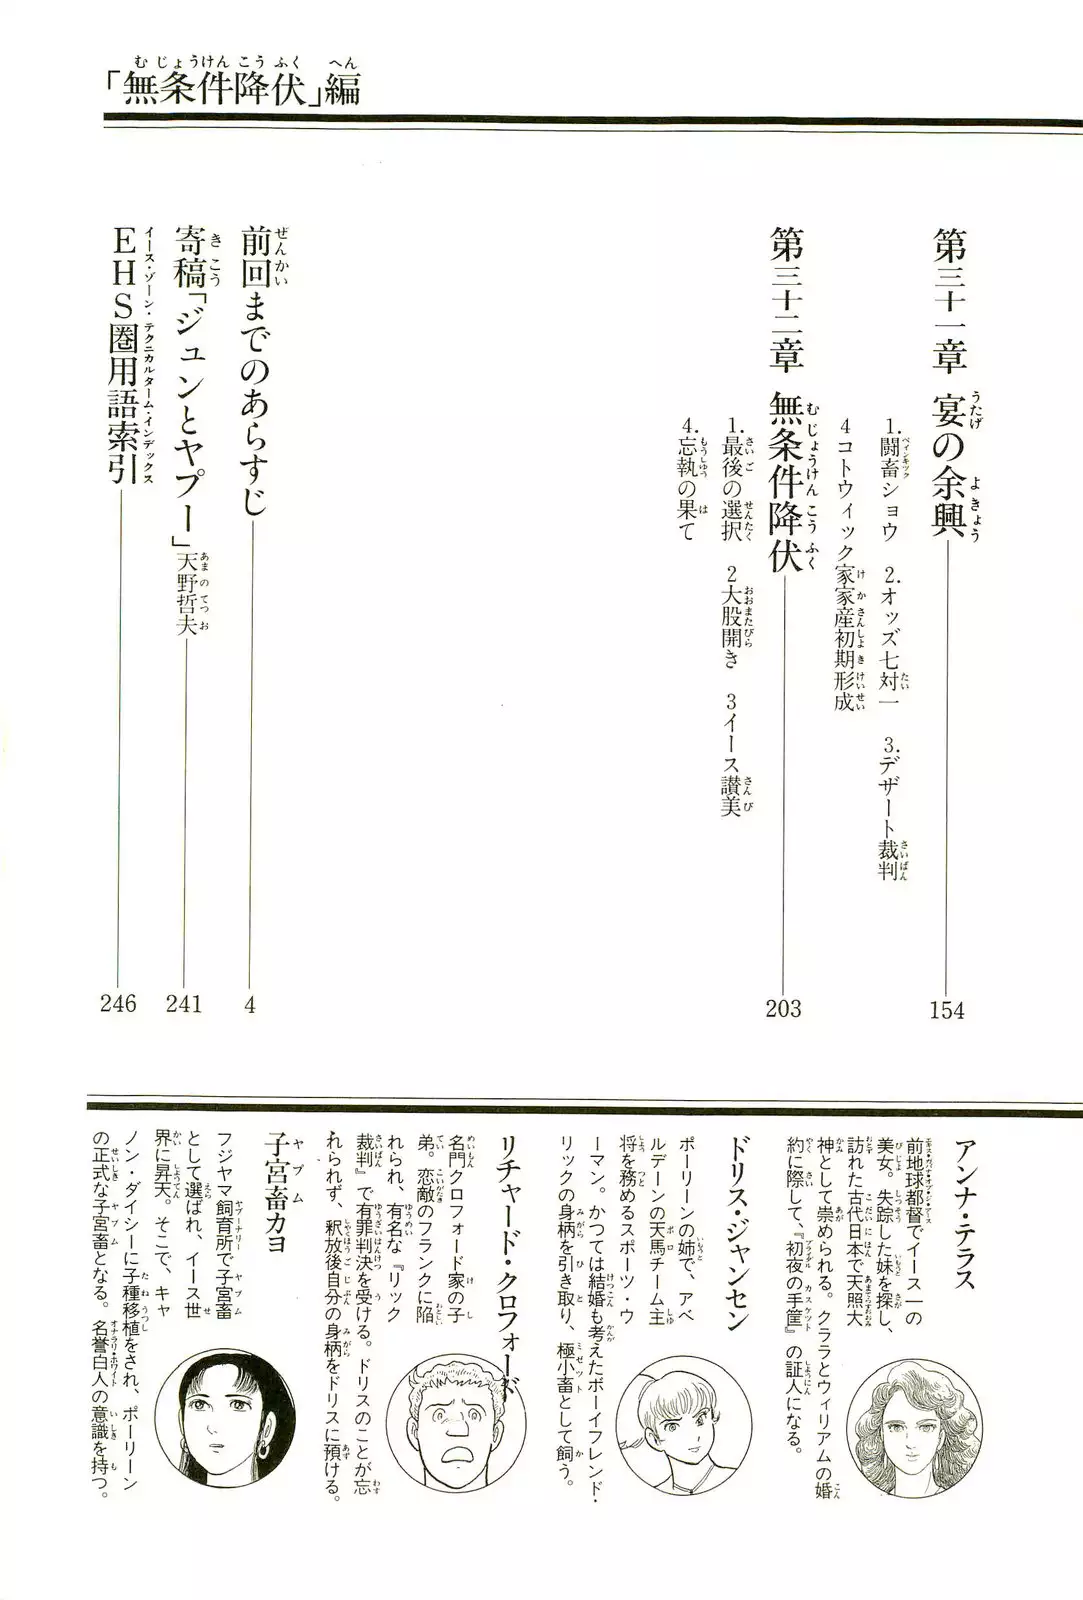 「無条件降伏」編
第三十一章 宴の余興
154
1.闘畜ショウ 2.オッズ七対一 3.デザート裁判
4 コトウィック家家産初期形成
第三十二章 無条件降伏
203
1.最後の選択 2大股開き 3イース讃美
4.忘執の果て
前回までのあらすじ
4
寄稿「ジュンとヤプー」天野哲夫
241
EHS圏用語索引
246
アンナ・テラス
前地球都督でイース一の
美女。失踪した妹を探し、
訪れた古代日本で天照大
神として崇められる。クララとウィリアムの婚
約に際して、『初夜の手筐』の証人になる。
ドリス・ジャンセン
ポーリーンの姉で、アベ
ルデーンの天馬チーム主
将を務めるスポーツ・ウ
ーマン。かつては結婚も考えたボーイフレンド・
リックの身柄を引き取り、極小畜として飼う。
リチャード・クロフォード
名門クロフォード家の子
弟。恋敵のフランクに陥
れられ、有名な『リック
裁判』で有罪判決を受ける。ドリスのことが忘
れられず、釈放後自分の身柄をドリスに預ける。
子宮畜カヨ
フジヤマ飼育所で子宮畜
として選ばれ、イース世
界に昇天。そこで、キャ
ノン・ダイシーに子種移植をされ、ポーリーン
の正式な子宮畜となる。名誉白人の意識を持つ。